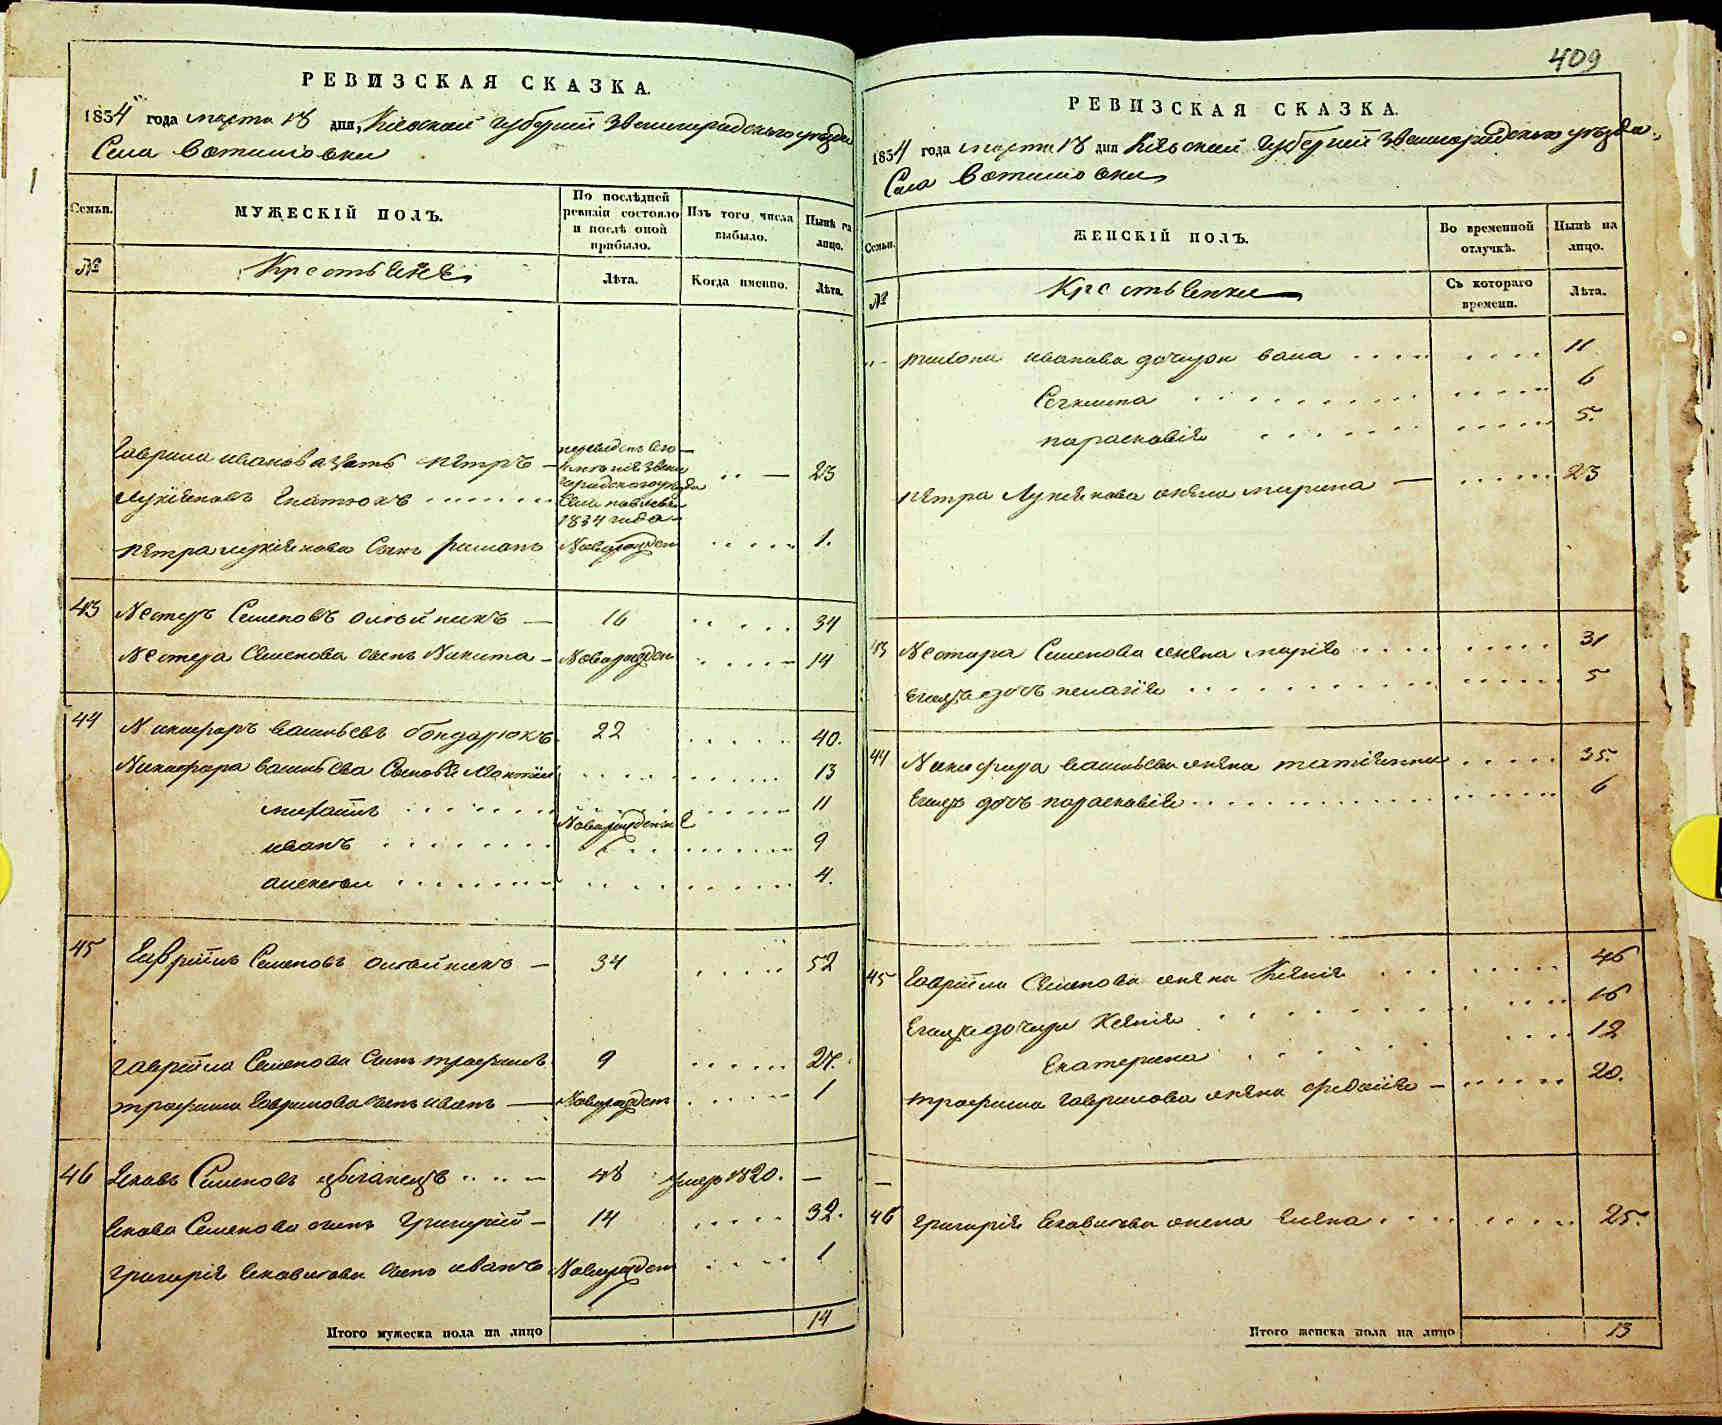 РЕВИЗСКАЯ СКАЗКА.
1854 года марта 18 дня, Киевской губернии Звенигородского уезда
Села
Семьи.
МУЖЕСКІЙ ПОЛЪ.
По послѣдней ревизіи состояло и послѣ оной прибыло.
Изъ того числа выбыло.
Нынѣ на лицо.
№
Крестьяне
Лѣта.
Когда именно.
Лѣта.
Гаврила Иванова зять Петръ — 23
Лукіяновъ
1834 года
Петра Лукіянова сынъ Романъ Новорожден 1.
43 Несторъ Семеновъ Олѣйникъ — 16 34
Нестера Семенова сынъ Никита — Новорожден 14
44 Никифоръ Васильевъ Бондарюкъ 22 40.
Никифора Васильева сыновья 13
Михаилъ 11
Новорожденные
Иванъ 9
Алексѣй 4.
45 Гавріилъ Семеновъ Олѣйникъ — 34 52
Гавріила Семенова сынъ Трофимъ 9 27.
Трофима Гаврилова сынъ Иванъ — Новорожден 1
46 Яковъ Семеновъ 48 умеръ 1820. —
Якова Семенова сынъ Григорій — 14 32.
Григорія Яковлева сынъ Иванъ Новорожден 1
Итого мужеска пола на лицо 14
409
РЕВИЗСКАЯ СКАЗКА.
1854 года марта 18 дня Киевской губернии Звенигородского уезда
Села
Семьи.
ЖЕНСКІЙ ПОЛЪ.
Во временной отлучкѣ.
Нынѣ на лицо.
№
Крестьянки
Съ котораго времени.
Лѣта.
Иванова дочери 11
6
Параскавія 5.
Петра Лукіянова жена Марина — 23
43 Нестора Семенова жена Марія 31
Его дочь Пелагія 5
44 Никифора Васильева жена Татіянна 35.
Его дочь Параскавія 6
45 Гавріила Семенова жена Ксенія 46
Его дочери Ксенія 16
Екатерина 12
Трофима Гаврилова жена Федосія — 20.
—
46 Григорія Яковлева жена Елена 25.
Итого женска пола на лицо 13